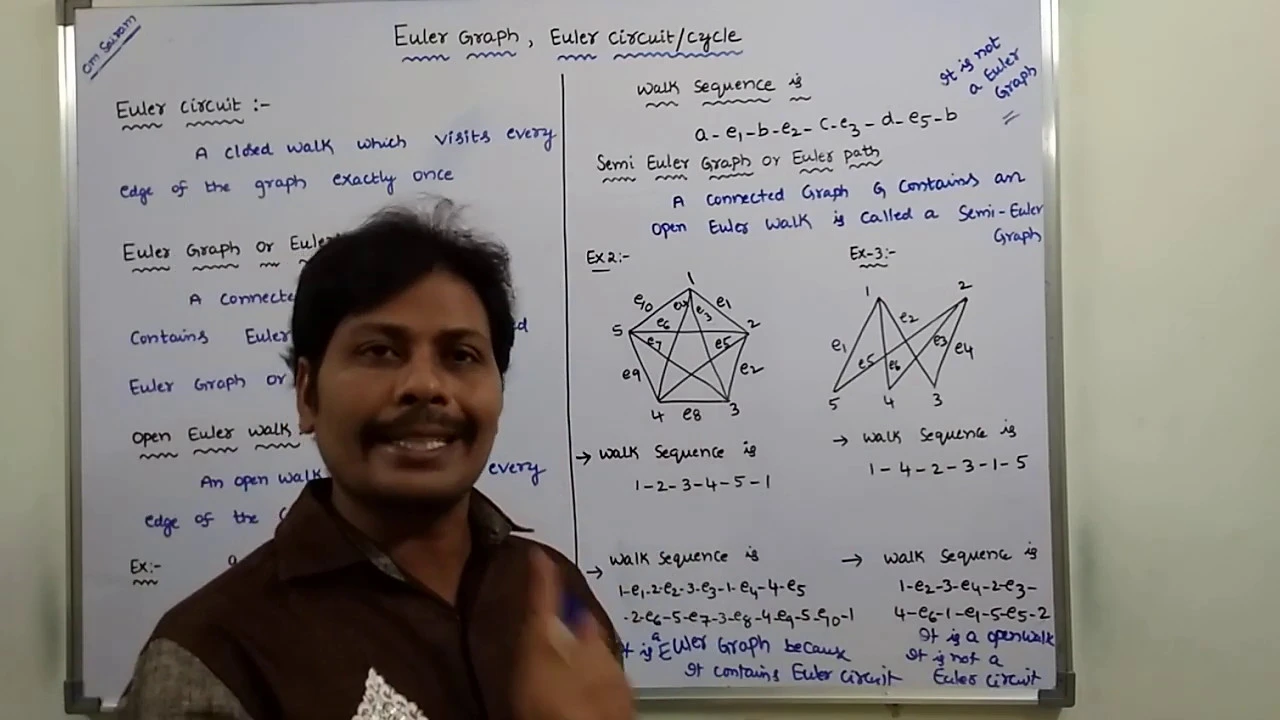 Om Sairam
Euler Graph, Euler circuit/cycle
Euler circuit :-
A closed walk which visits every
edge of the graph exactly once
Euler Graph or
A
Contains
Euler Graph or
open Euler walk
An open walk every
edge of the
Ex:-
a
Walk sequence is
a-e1-b-e2-c-e3-d-e5-b
It is not
a Euler
Graph
Semi Euler Graph or Euler path
A connected Graph G contains an
open Euler walk is called a Semi-Euler
Graph
Ex2:-
1
e10 e4 e3 e1
5 e6 2
e7 e5
e9 e2
4 e8 3
→ Walk sequence is
1-2-3-4-5-1
→ Walk sequence is
1-e1-2-e2-3-e3-1-e4-4-e5
-2-e6-5-e7-3-e8-4-e9-5-e10-1
It is a Euler Graph because
It contains Euler circuit
Ex-3:-
1 2
e2
e1 e3 e4
e5 e6
5 4 3
→ Walk sequence is
1-4-2-3-1-5
→ Walk sequence is
1-e2-3-e4-2-e3-
4-e6-1-e1-5-e5-2
It is a openwalk
It is not a
Euler circuit